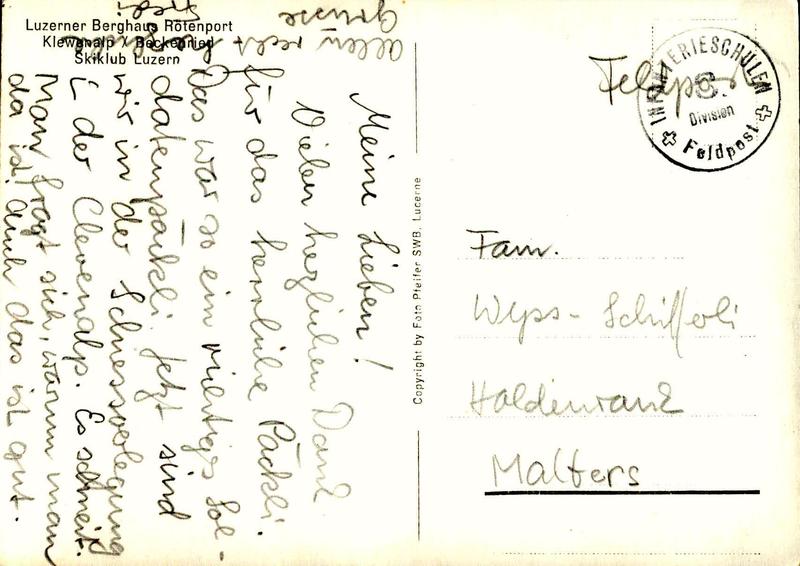 Luzerner Berghaus Rötenport
Klewenalp Beckenried
Skiklub Luzern
Meine Lieben!
Vielen herzlichen Dank
für das herrliche Päckli.
Das war so ein richtiges Sol-
datenpäckli. Jetzt sind
wir in der Schiessverlegung
i der Clevenalp. Es schneit.
Man fragt sich, warum man
da ist. Auch das ist gut.
allen recht
Grüsse
Fredi
Copyright by Foto Pfeifer SWB, Lucerne
Feldpost
INFANTERIESCHULEN
Division
Feldpost
Fam.
Wyss-Schifferli
Haldenrank
Malters